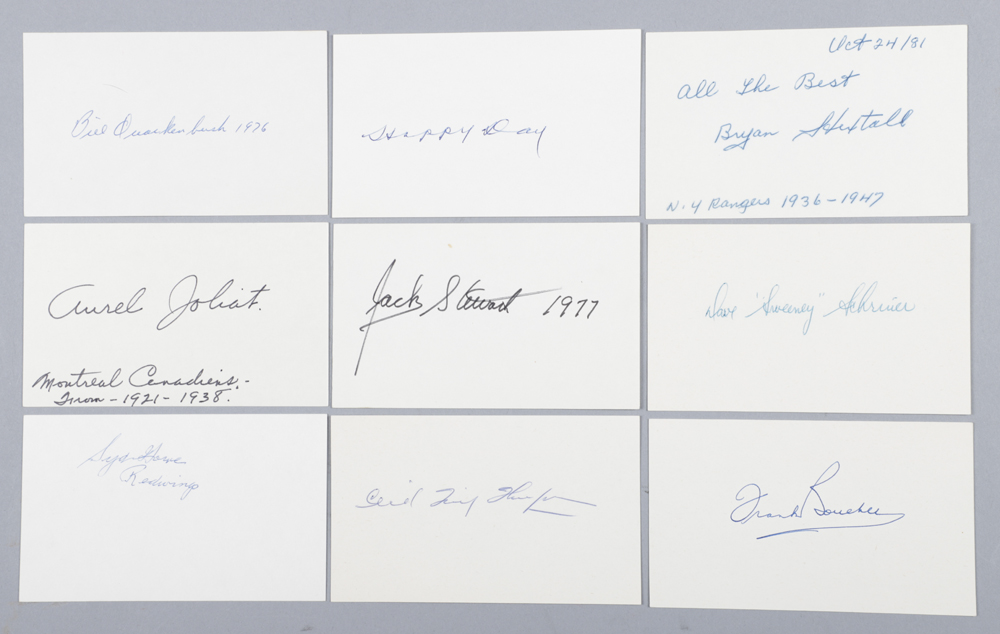 Bill Quackenbush 1976
Happy Day
Oct 24/81
All The Best
Bryan Hextall
N.Y Rangers 1936-1947
Aurel Joliat.
Montreal Canadiens.-
From-1921-1938.
Jack Stewart 1977
Dave "Sweeney" Schriner
Syd Howe
Redwings
Cecil Tiny Thompson
Frank Boucher